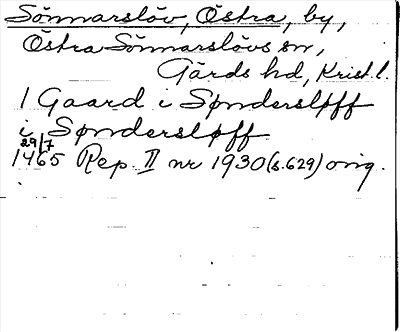 Sönnarslöv, Östra, by,
Östra Sönnarslövs sn,
Gärds hd, Krist.l.
1 Gaard i Søndersløff
i Søndersløff
29/7
1465 Rep. II nr 1930 (s.629) orig.